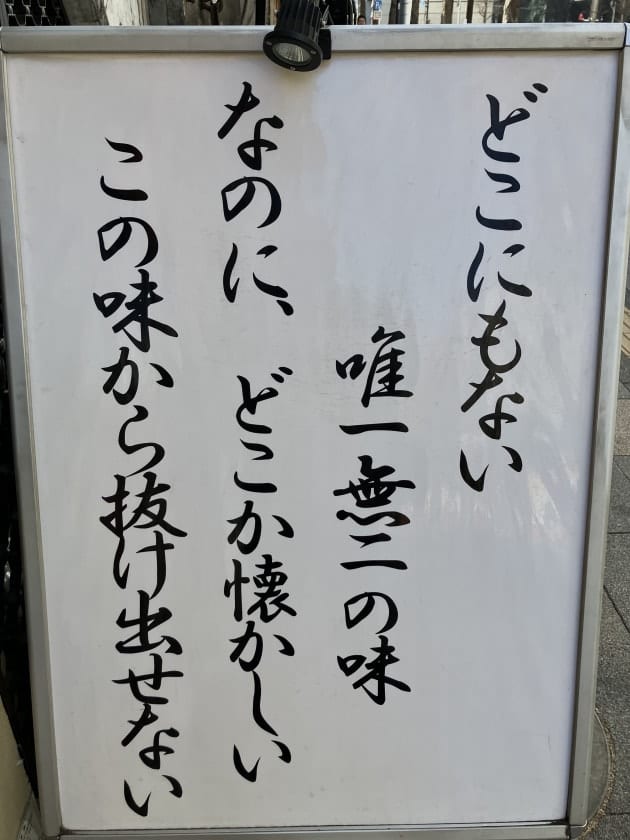 どこにもない
唯一無二の味
なのに、どこか懐かしい
この味から抜け出せない